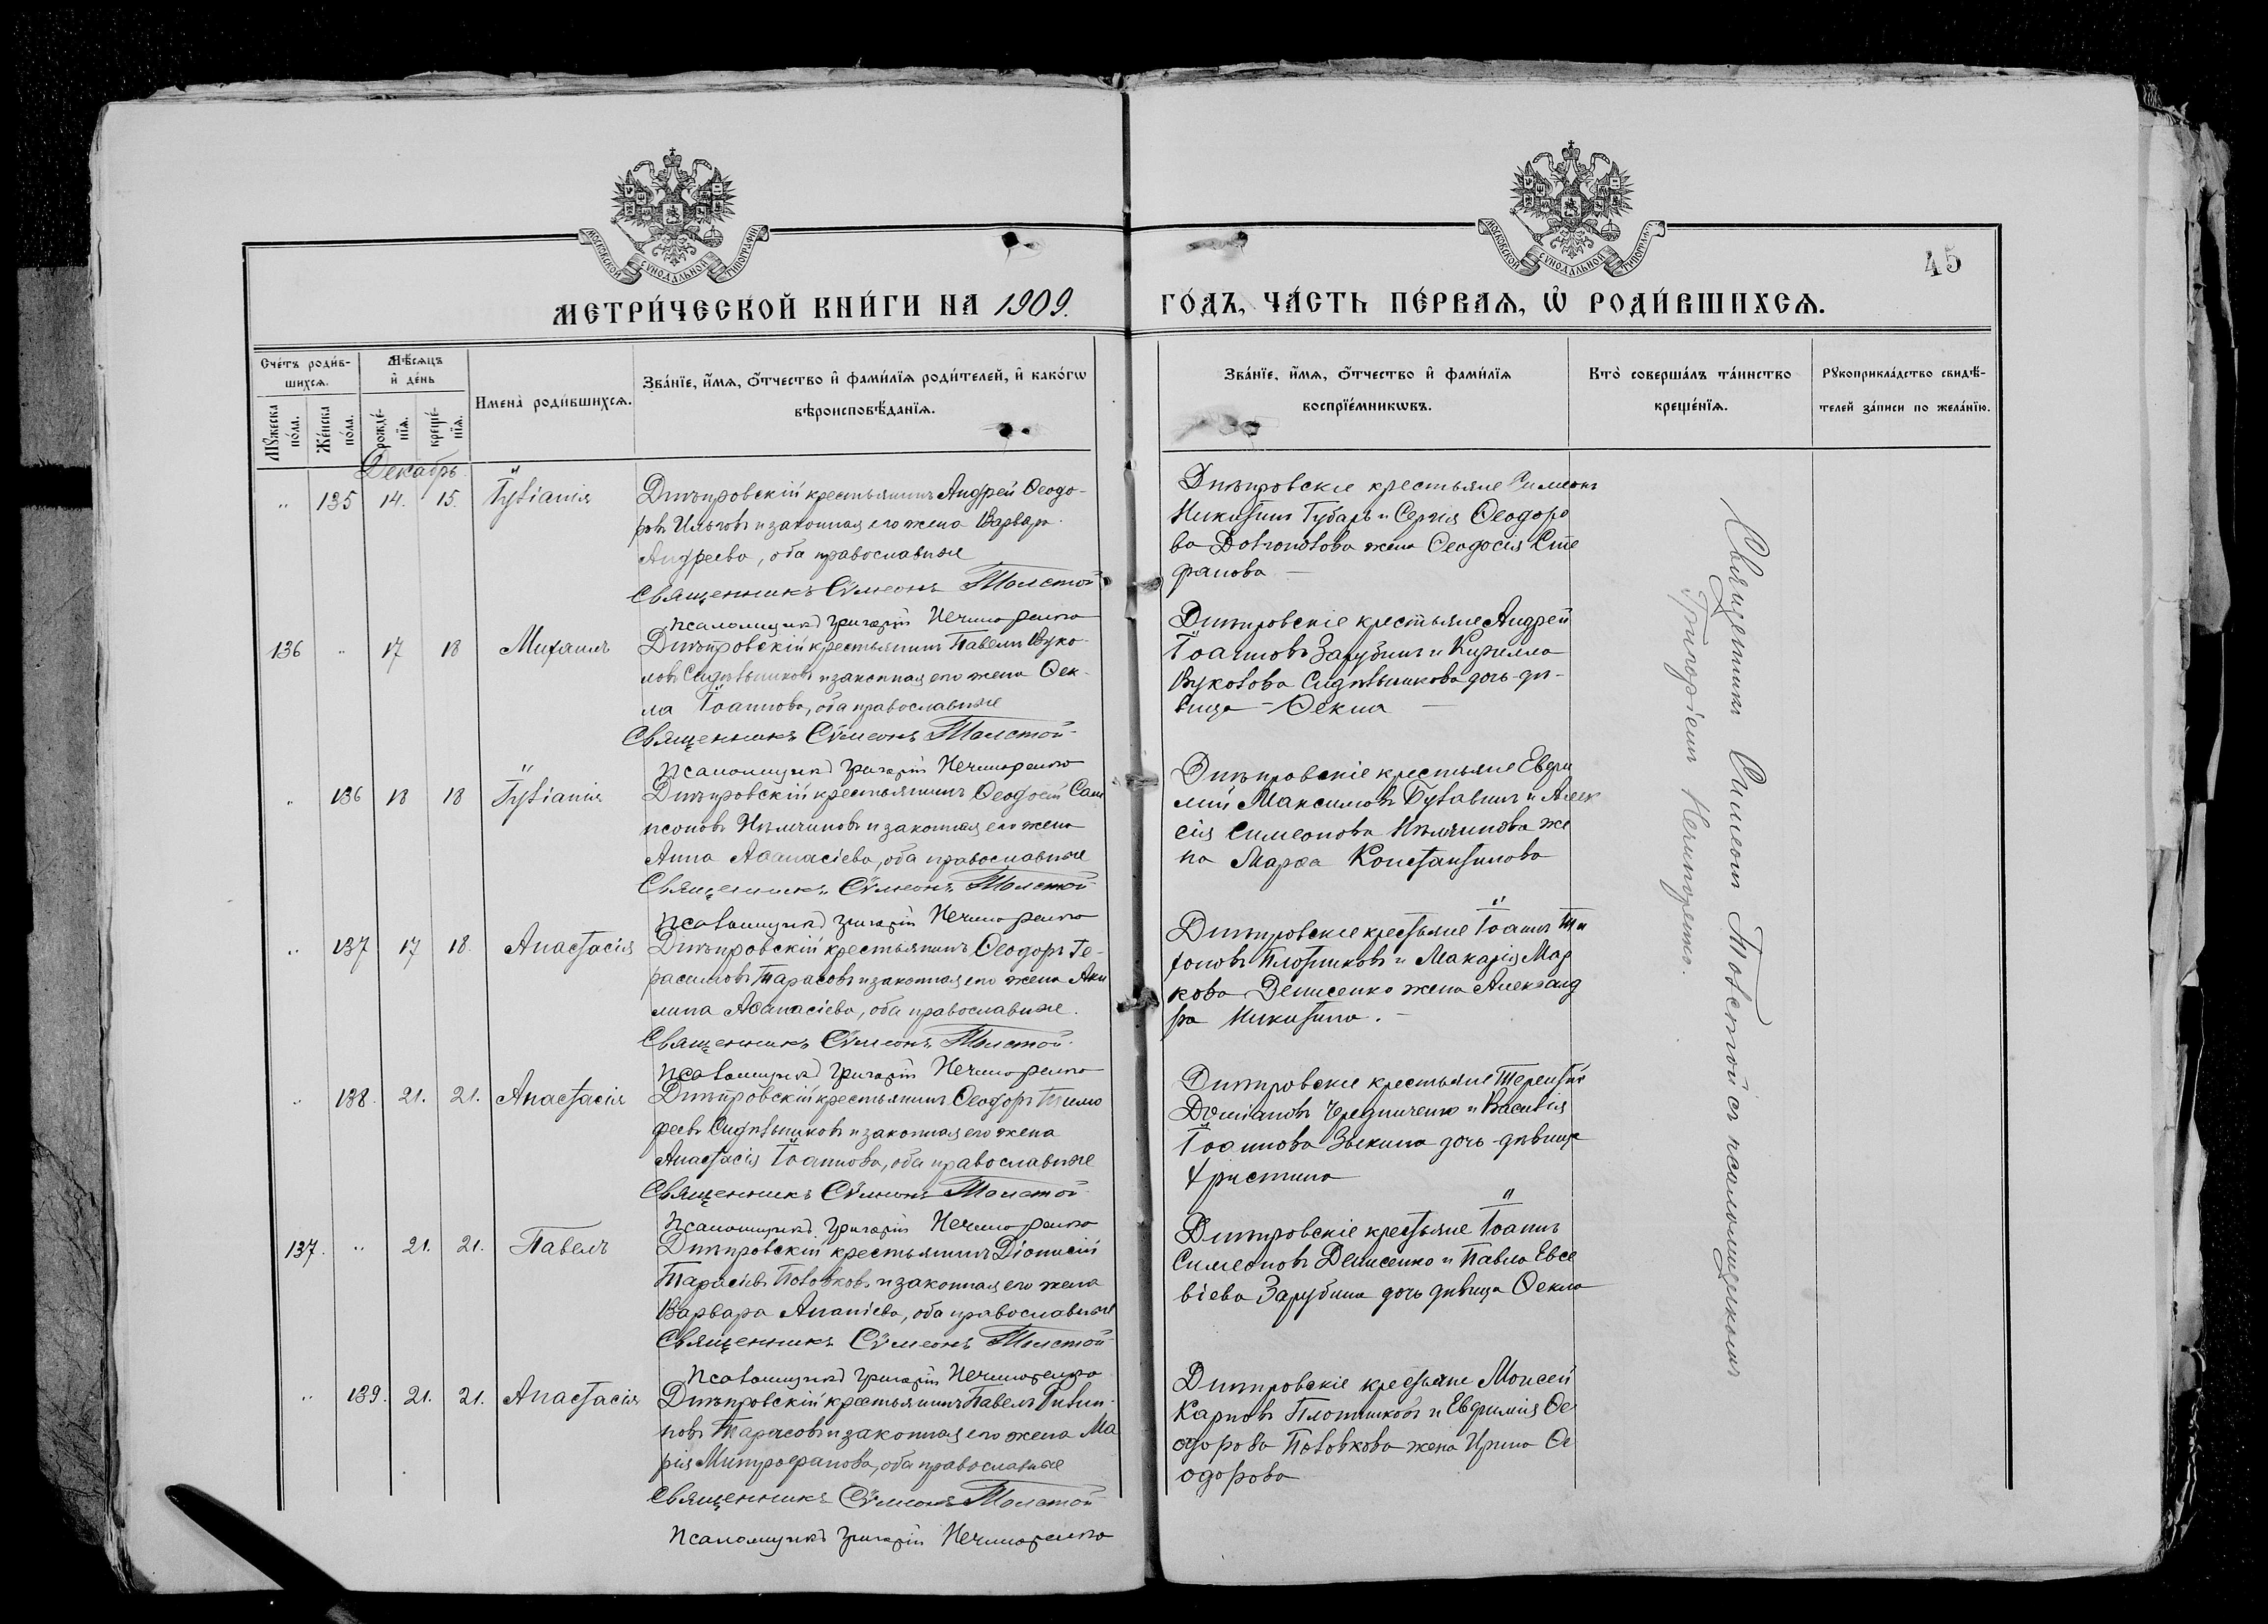 МОСКОВСКОЙ СѴНОДАЛЬНОЙ ТИПОГРАФІИ
МОСКОВСКОЙ СѴНОДАЛЬНОЙ ТИПОГРАФІИ
45
МЕТРИ́ЧЕСКОЙ КНИ́ГИ НА 1909.
ГО́ДЪ, ЧА́СТЬ ПЕ́РВАЯ, Ѡ РОДИ́ВШИХСЯ.
Сче́тъ роди́в-
шихся.
Мѣ́сяцъ
и де́нь
Мꙋ́жеска
по́ла.
Же́нска
по́ла.
рожде́-
нїя.
креще́-
нїя.
Имена̀ роди́вшихся.
Зва́нїе, и́мя, о́тчество и фами́лїя роди́телей, и како́гѡ
вѣроисповѣ́данїя.
Зва́нїе, и́мя, о́тчество и фами́лїя
воспрїе́мникѡвъ.
Кто̀ соверша́лъ та́инство
креще́нїя.
Рꙋкоприкла́дство свидѣ́-
телей за́писи по жела́нїю.
Декабрь.
„ 135 14. 15. Іуліанія
Днѣпровскій крестьянинъ Андрей Ѳеодо-
ровъ Ильговъ и законная его жена Варвара
Андреева, оба православные
Священникъ Сѵмеонъ Толстой
Псаломщикъ Григорій Нечипоренко
Днѣпровскіе крестьяне Симеонъ
Никитинъ Губарь и Сергія Ѳеодоро
ва жена Ѳеодосія Сте
фанова —
136 „ 17 18 Михаилъ
Днѣпровскій крестьянинъ Павелъ Вуко-
ловъ Сидѣльниковъ и законная его жена Ѳек-
ла Іоаннова, оба православные
Священникъ Сѵмеонъ Толстой
Псаломщикъ Григорій Нечипоренко
Днѣпровскіе крестьяне Андрей
Іоанновъ Зарубинъ и Кирилла
Вуколова Сидѣльникова дочь дѣ-
вица — Ѳекла —
„ 136 18 18 Іуліанія
Днѣпровскій крестьянинъ Ѳеодосій Сам
псоновъ Нѣмчиновъ и законная его жена
Анна Аѳанасіева, оба православные
Священникъ Сѵмеонъ Толстой
Псаломщикъ Григорій Нечипоренко
Днѣпровскіе крестьяне Евфи
мій Максимовъ и Алек
сія Симеонова Нѣмчинова же
на Марѳа Константинова
„ 137 17 18. Анастасія
Днѣпровскій крестьянинъ Ѳеодоръ Ге-
расимовъ Тарасовъ и законная его жена Аки
лина Аѳанасіева, оба православные.
Священникъ Сѵмеонъ Толстой
Псаломщикъ Григорій Нечипоренко
Днѣпровскіе крестьяне Іоаннъ Ти
хоновъ Плотниковъ и Макарія Мар
кова Денисенко жена Александ
ра Никитина. —
„ 138. 21. 21. Анастасія
Днѣпровскій крестьянинъ Ѳеодоръ Тимо
феевъ Сидѣльниковъ и законная его жена
Анастасія Іоаннова, оба православные
Священникъ Сѵмеонъ Толстой
Псаломщикъ Григорій Нечипоренко
Днѣпровскіе крестьяне Терентій
Даміановъ Чередниченко и Василія
Іоаннова Зыкина дочь дѣвица
Христина
137. „ 21. 21. Павелъ
Днѣпровскій крестьянинъ Діонисій
Тарасіевъ Половковъ и законная его жена
Варвара Ананіева, оба православные
Священникъ Сѵмеонъ Толстой
Псаломщикъ Григорій Нечипоренко
Днѣпровскіе крестьяне Іоаннъ
Симеоновъ Денисенко и Павла Евсе
віева Зарубина дочь дѣвица Ѳекла
„ 139. 21. 21. Анастасія
Днѣпровскій крестьянинъ Павелъ Филип-
повъ Тарасовъ и законная его жена Ма
рія Митрофанова, оба православные
Священникъ Сѵмеонъ Толстой
Псаломщикъ Григорій Нечипоренко
Днѣпровскіе крестьяне Моисей
Карповъ Плотниковъ и Евфимія Ѳе
одорова Половкова жена Ирина Ѳе
одорова
Священникъ Симеонъ Толстой съ псаломщикомъ
Григоріемъ Нечипоренко.